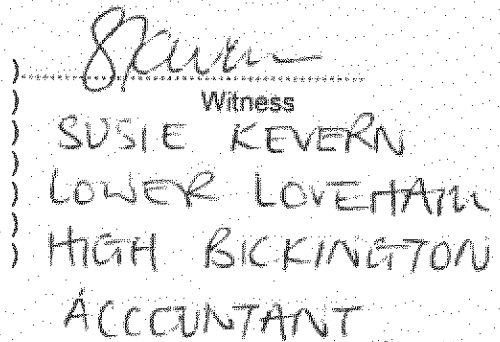 SKevern
Witness
SUSIE KEVERN
LOWER LOVEHAM
HIGH BICKINGTON
ACCOUNTANT